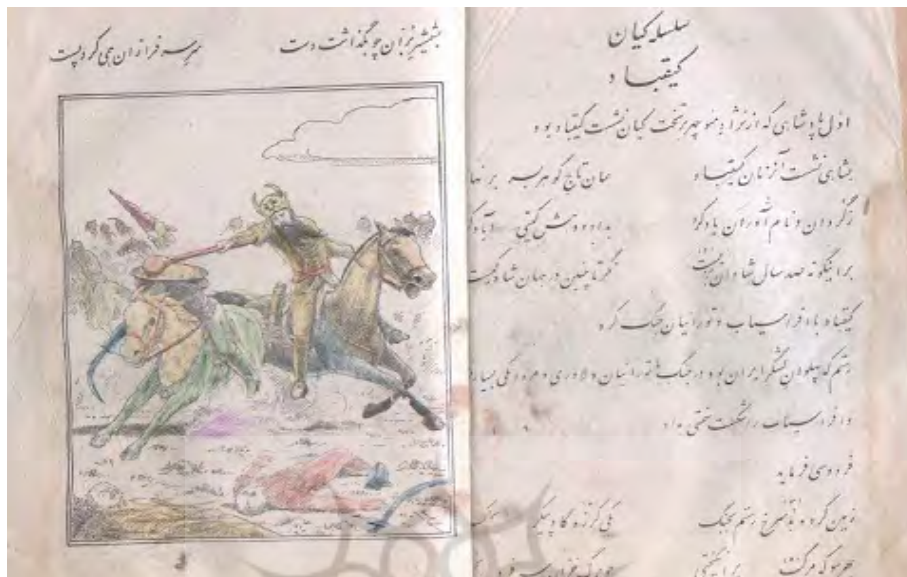 سلسله کیان
کیقباد
اول پادشاهی که از نژاد منوچهر بر تخت کیان نشست کیقباد بود
بشاهی نشست آنزمان کیقباد همان تاج گوهر بسر بر نها
زگردان و نام آوران یاد کرد بداد و دهش گیتی آباد
براینگونه صد سال شادان بزیست نگر تا چنین در جهان شاه کیست
کیقباد با افراسیاب و تورانیان جنگ کرد
رستم که پهلوان لشگر ایران بود در جنگ با تورانیان دلاوری و مردانگی بسیار
و افراسیاب را شکست سختی داد
فردوسی فرماید
زمین کرده بد سرخ رستم بجنگ یکی گرزه گاو پیکر
هر سو که مرکب برانگیختی چو برگ خزان سر فرو
بشمشیر بران چو بگذاشت دست سر سرفرازان همی کرد پست